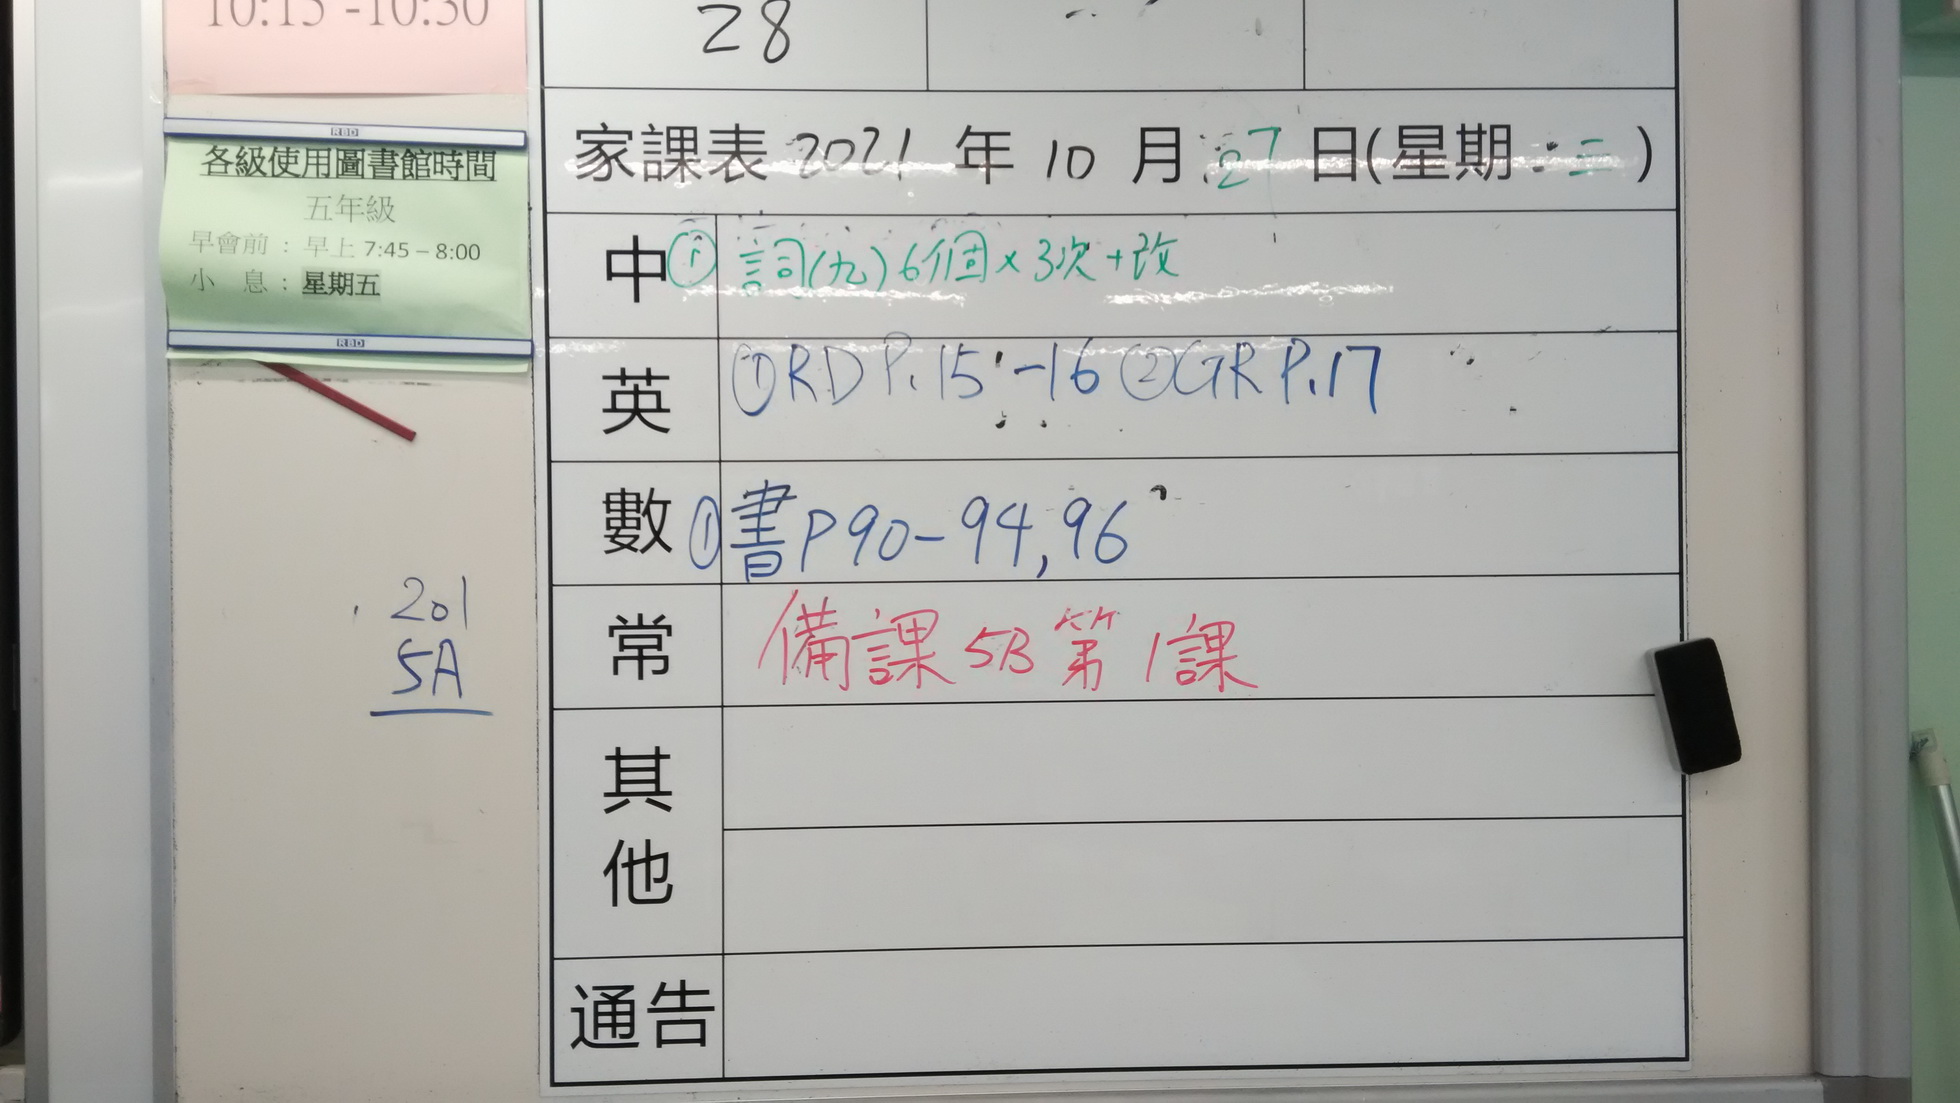 10:15 -10:30
28
RBD
各級使用圖書館時間
五年級
早會前 : 早上 7:45 – 8:00
小 息 : 星期五
RBD
家課表 2021 年 10 月 27 日(星期 : 三 )
中 ① 詞(九) 6個 × 3次 + 改
英 ① RD P.15 -16 ② GR P.17
數 ① 書 P 90 - 94, 96
常 備課 5B 第 1 課
其他
通告
201
5A